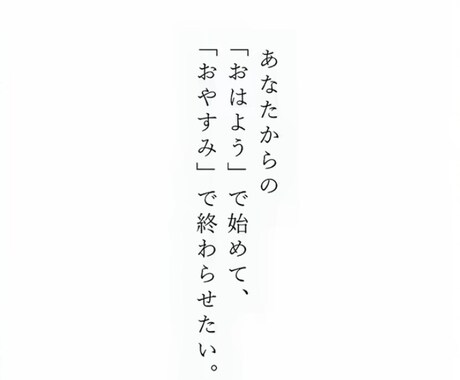 あなたからの
「おはよう」で始めて、
「おやすみ」で終わらせたい。